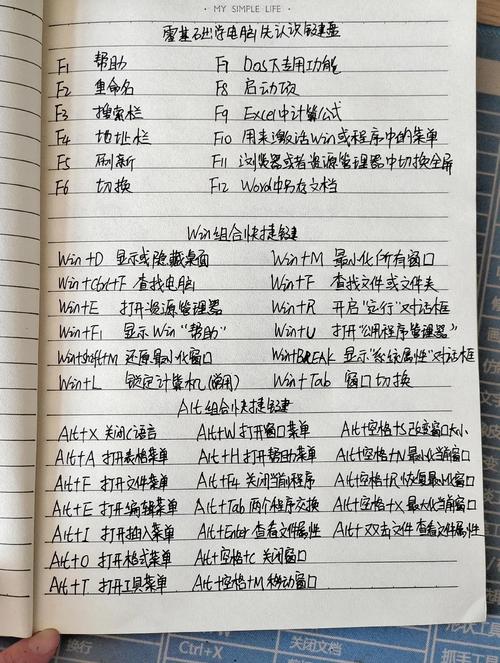 · MY SIMPLE LIFE ·
零基础学电脑先认识键盘
F1 帮助 F7 Dos下专用功能
F2 重命名 F8 启动项
F3 搜索栏 F9 Excel中计算公式
F4 地址栏 F10 用来激活Win或程序中的菜单
F5 刷新 F11 浏览器或者资源管理器中切换全屏
F6 切换 F12 Word中另存文档
Win组合快捷键
Win+D 显示或隐藏桌面 Win+M 最小化所有窗口
Win+Ctrl+F 查找电脑 Win+F 查找文件或文件夹
Win+E 打开资源管理器 Win+R 开启"运行"对话框
Win+F1 显示Win"帮助" Win+U 打开"公用程序管理器"
Win+shift+M 还原最小化窗口 Win+BREAK 显示"系统属性"对话框
Win+L 锁定计算机(常用) Win+Tab 窗口切换
Alt组合快捷键
Alt+X 关闭C语言 Alt+W 打开窗口菜单 Alt+空格+S 改变窗口大小
Alt+A 打开表格菜单 Alt+H 打开帮助菜单 Alt+空格+N 最小化当前窗口
Alt+F 打开文件菜单 Alt+F4 关闭当前程序 Alt+空格+R 恢复最小化窗口
Alt+E 打开编辑菜单 Alt+Tab 两个程序交换 Alt+空格+X 最大化当前窗口
Alt+I 打开插入菜单 Alt+Enter 查看文件属性 Alt+双击文件 查看文件属性
Alt+O 打开格式菜单 Alt+空格+C 关闭窗口
Alt+T 打开工具菜单 Alt+空格+M 移动窗口
换行 Ctrl+X 关闭文档 形状工具